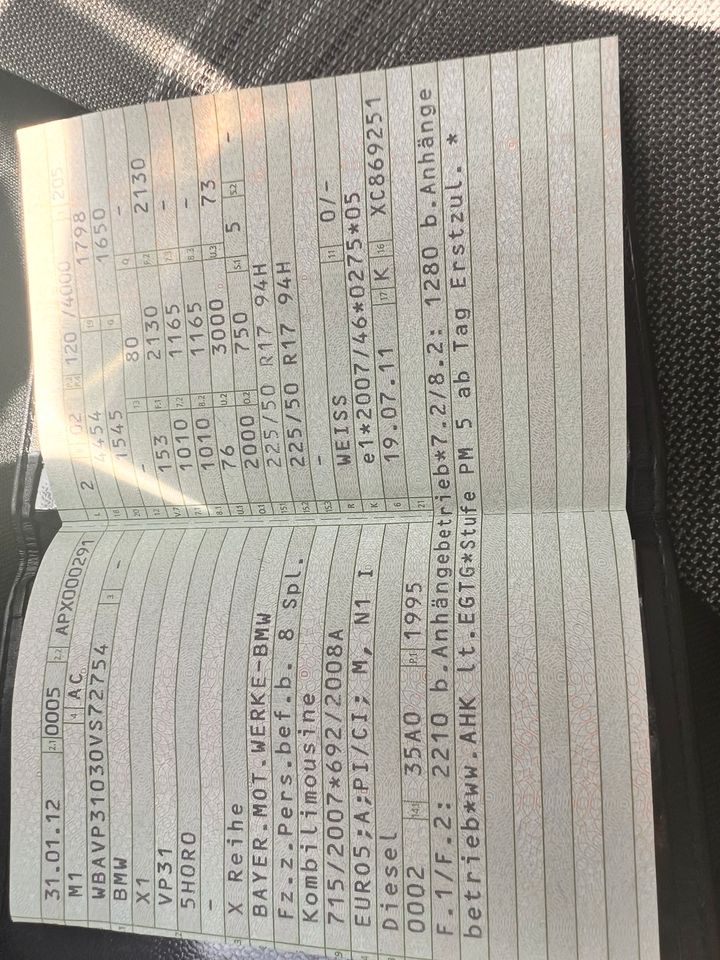 31.01.12 2.1 0005 2.2 APX000291
M1 4 AC
WBAVP31030VS72754 3 -
BMW
X1
VP31
5HOR0
-
X Reihe
BAYER.MOT.WERKE-BMW
Fz.z.Pers.bef.b. 8 Spl.
Kombilimousine
715/2007*692/2008A
EURO5;A;PI/CI; M, N1 I
Diesel
0002 14.1 35A0 P.1 1995
L 2 02 120 /4000 205
18 4454 19 1798
20 1545 G 1650
12 - 13 80 Q -
V.7 153 F.1 2130 F.2 2130
7.1 1010 7.2 1165 7.3 -
8.1 1010 8.2 1165 8.3 -
U.1 76 U.2 3000 U.3 73
O.1 2000 O.2 750 S.1 5 S.2 -
15.1 225/50 R17 94H
15.2 225/50 R17 94H
15.3 -
R WEISS 11 0/-
K e1*2007/46*0275*05
6 19.07.11 17 K 16 XC869251
21
F.1/F.2: 2210 b.Anhängebetrieb*7.2/8.2: 1280 b.Anhänge
betrieb*WW.AHK lt.EGTG*Stufe PM 5 ab Tag Erstzul. *